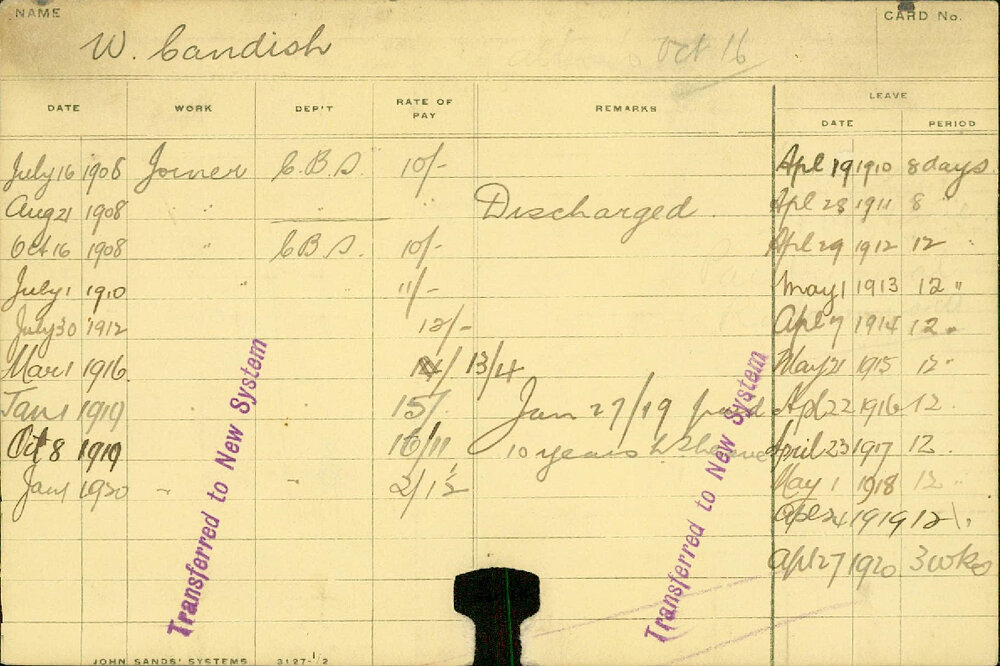 NAME CARD No.
W. Candish Oct 16
DATE WORK DEP'T RATE OF PAY REMARKS LEAVE
DATE PERIOD
July 16 1908 Joiner C.B.S. 10/- Apl 19 1910 8 days
Aug 21 1908 " " " Discharged Apl 28 1911 8 "
Oct 16 1908 " C.B.S. 10/- Apl 29 1912 12 "
July 1 1910 " 11/- May 1 1913 12 "
July 30 1912 12/- Apl 7 1914 12 "
Mar 1 1916 13/4 May 21 1915 12 "
Jan 1 1919 15/- Jan 27/19 paid Apl 22 1916 12 "
Oct 8 1919 16/11 10 years April 23 1917 12 "
Jan 1 1920 " " 2/1½ May 1 1918 12 "
Apl 24 1919 12 "
Apl 27 1920 3 wks
Transferred to New System
Transferred to New System
JOHN SANDS' SYSTEMS 3127-1/2